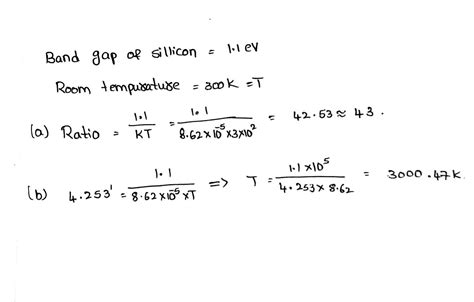 Band gap of sillicon = 1.1 eV
Room tempurature = 300K = T
(a) Ratio = 1.1/KT = 1.1/8.62×10⁻⁵×3×10² = 42.53 ≈ 43.
(b) 4.253' = 1.1/8.62×10⁻⁵×T ⇒ T = 1.1×10⁵/4.253×8.62 = 3000.47K